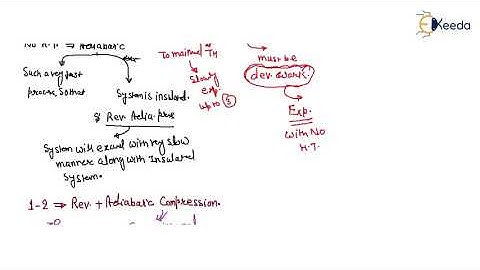 Ekeeda
No H.T. ⇒ Adiabatic
Such a very fast
process, so that
System is insulated.
To maintned TH
Slowly
exp.
upto 3
must be
dev. work!
Exp.
with No
H.T.
& Rev. Adia. pro
System will execud with very slow
manner along with Insulated
System.
1-2 ⇒ Rev. + Adiabatic Compression.